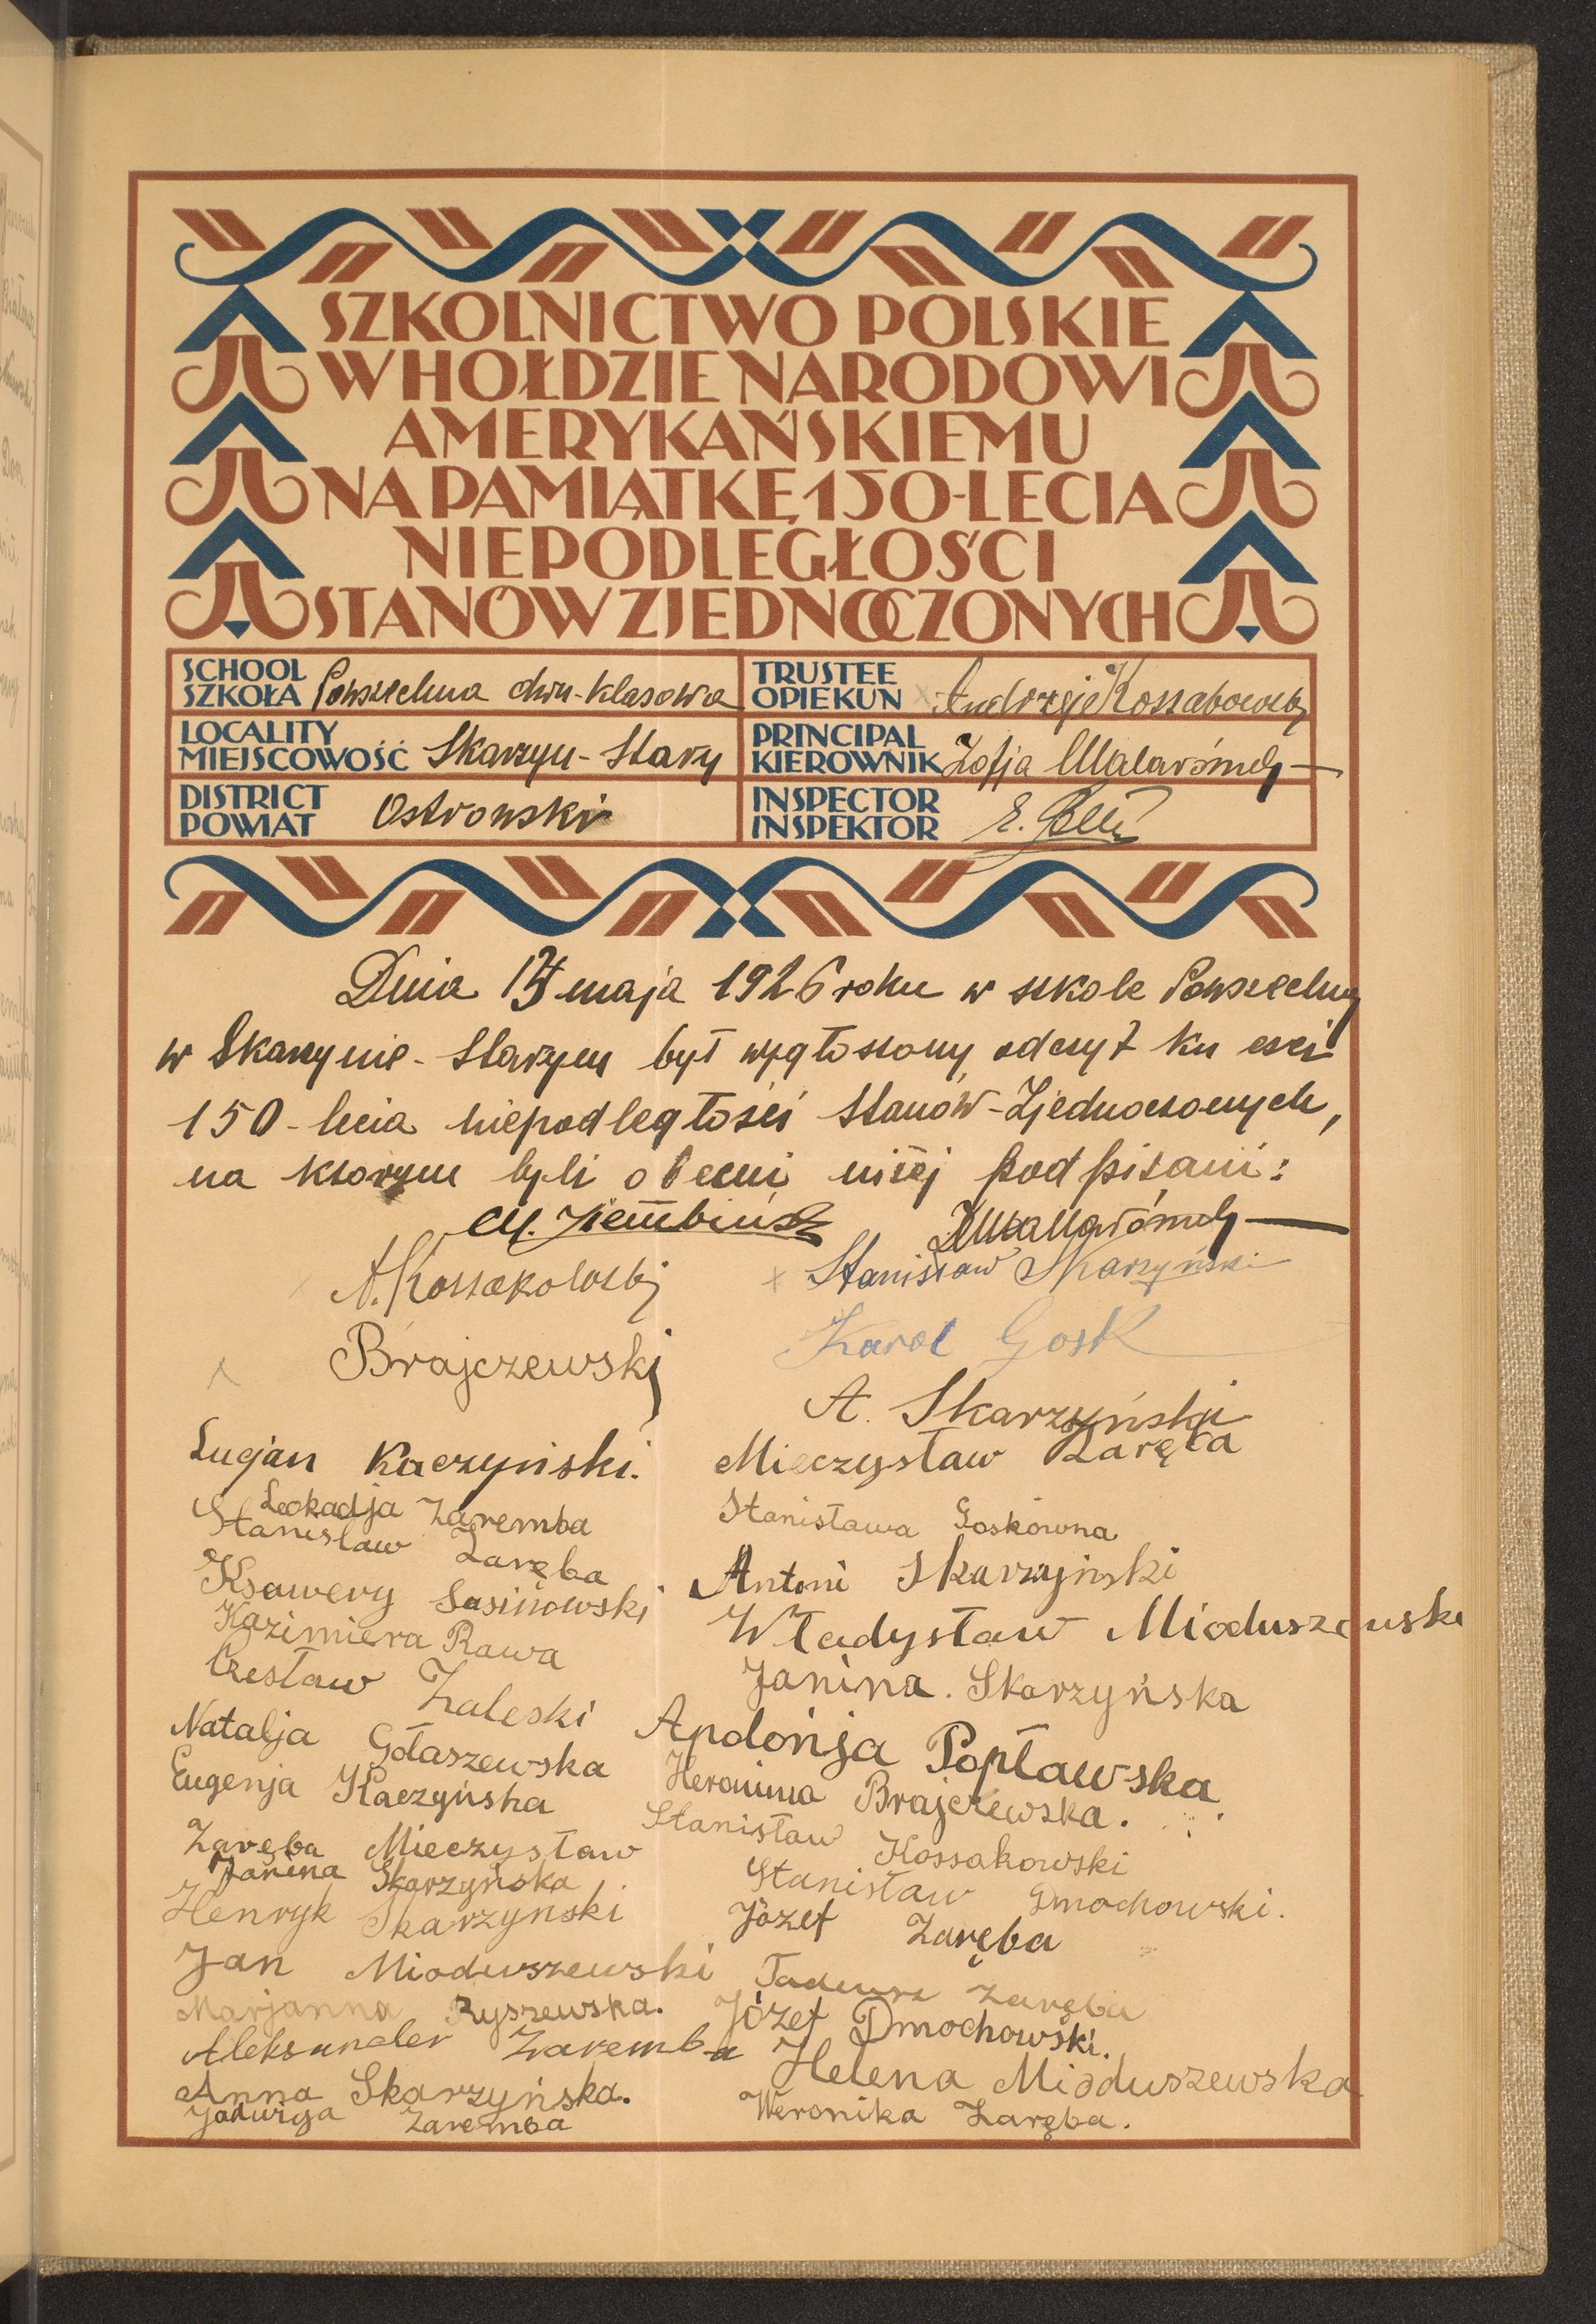 SZKOLNICTWO POLSKIE
W HOŁDZIE NARODOWI
AMERYKAŃSKIEMU
NA PAMIĄTKĘ 150-LECIA
NIEPODLEGŁOŚCI
STANÓW ZJEDNOCZONYCH
SCHOOL
SZKOŁA Powszechna dwu-klasowa
TRUSTEE
OPIEKUN Andrzej
LOCALITY
MIEJSCOWOŚĆ Skarzyn-Stary
PRINCIPAL
KIEROWNIK Zofja
DISTRICT
POWIAT Ostrowski
INSPECTOR
INSPEKTOR
Dnia maja 1926 roku w szkole Powszechnej
w Skarzynie-Starym był wygłoszony odczyt ku czci
150-lecia niepodległości Stanów-Zjednoczonych,
na ktorzym byli obecni niżej podpisani:
M. Ziembiński
A. Kossakowski Stanisław Skarzyński
Brajczewski Karol Gosk
A. Skarzyński
Lucjan Kaczyński. Mieczysław Zaręba
Leokadja Zaremba Stanisława Goskówna
Stanisław Zaręba
Ksawery Sasinowski Antoni Skarzyński
Kazimiera Rawa Władysław Mioduszewski
Czesław Zaleski Janina. Skarzyńska
Natalja Gołaszewska Apolonja Popławska
Eugenja Kaczyńska Heronima Brajczewska.
Zaręba Mieczysław Stanisław Kossakowski
Janina Skarzyńska Stanisław Dmochowski.
Henryk Skarzynski Józef Zaręba
Jan Mioduszewski Tadeusz Zaręba
Marjanna Ryszewska. Józef Dmochowski.
Aleksander Zaremba Helena Mioduszewska
Anna Skarzyńska.
Jadwiga Zaremba Weronika Zaręba.